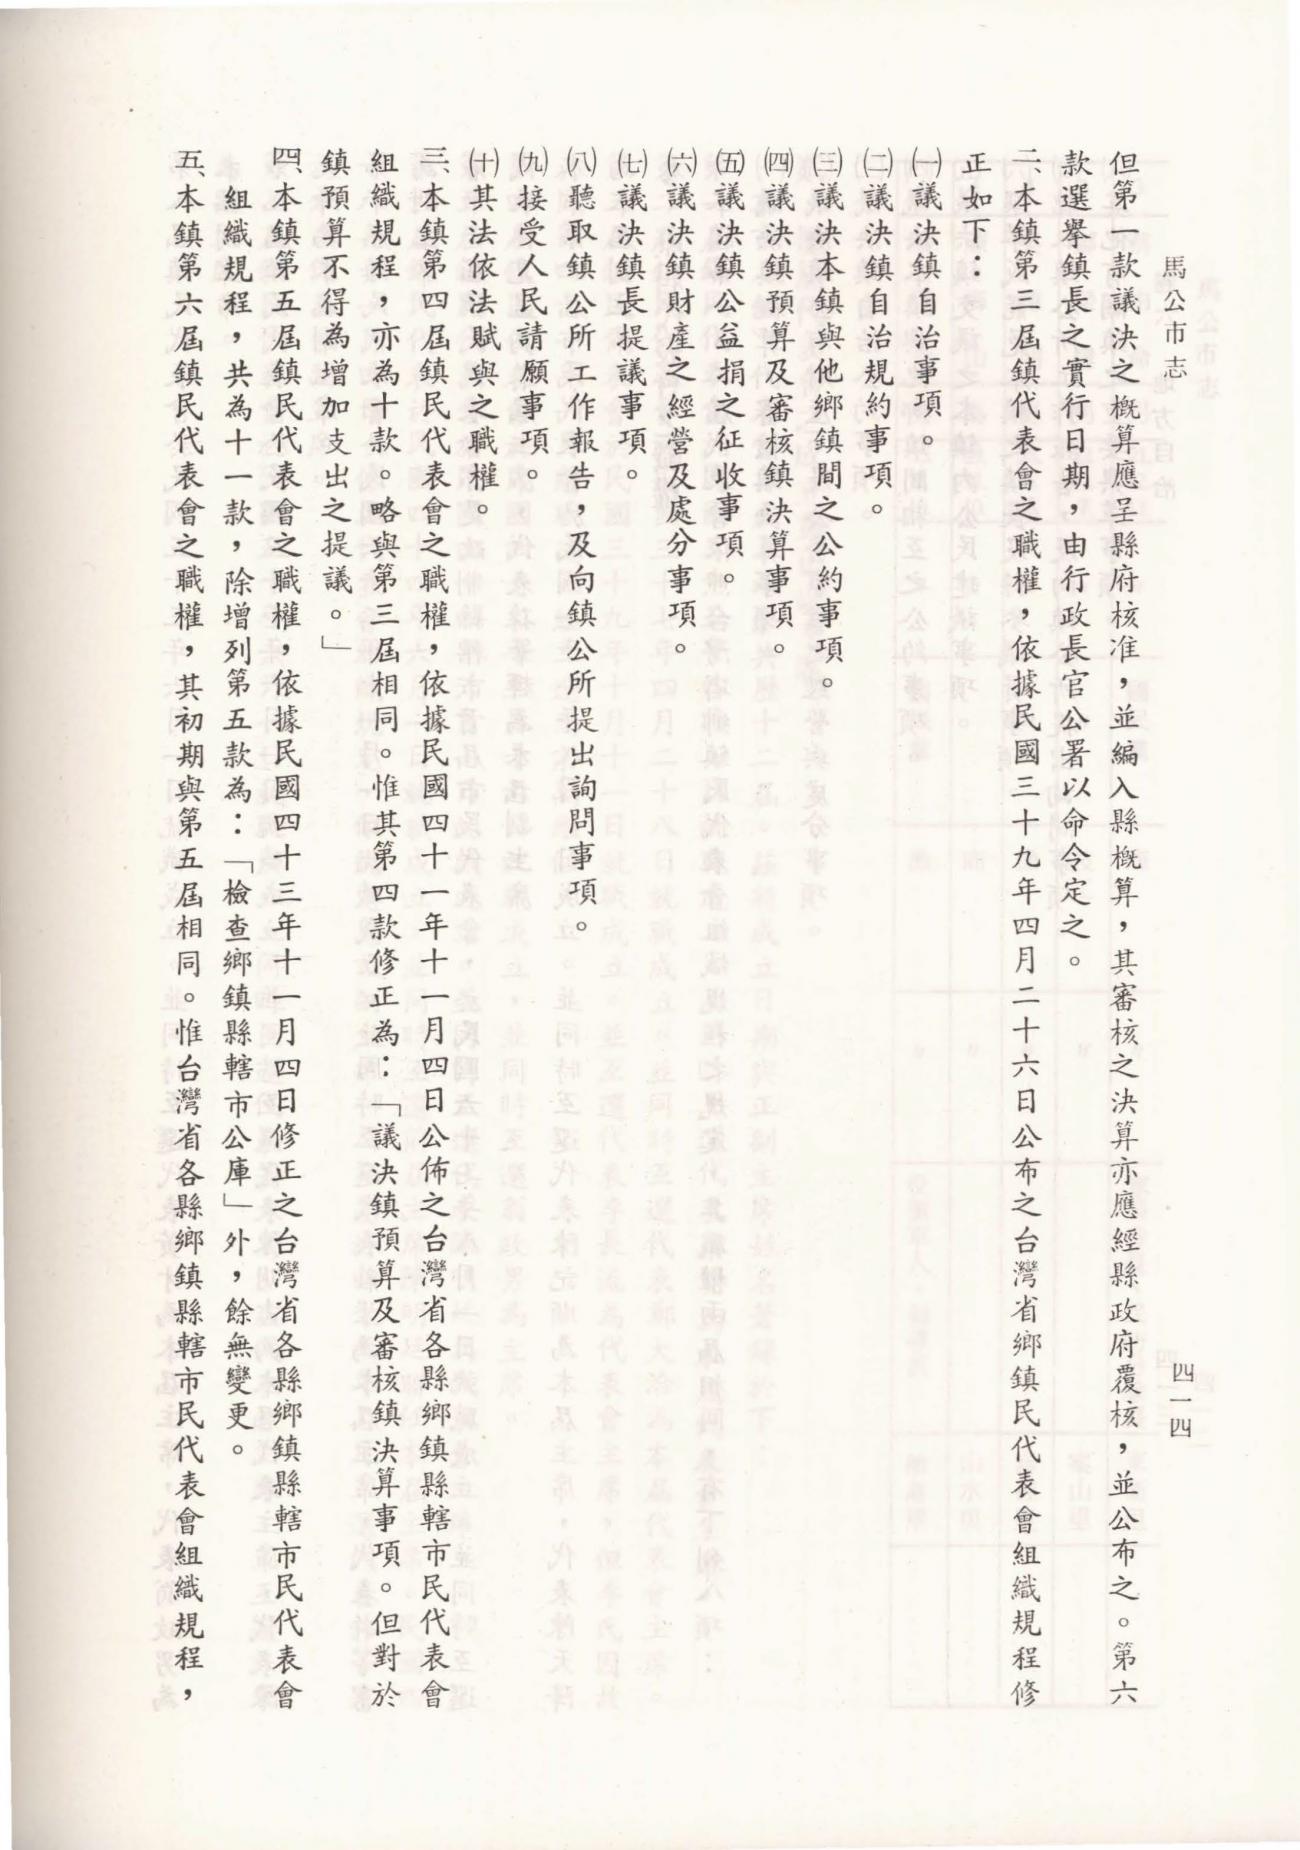 馬公市志
四一四
但第一款議決之概算應呈縣府核准，並編入縣概算，其審核之決算亦應經縣政府覆核，並公布之。第六
款選舉鎮長之實行日期，由行政長官公署以命令定之。
二、本鎮第三屆鎮代表會之職權，依據民國三十九年四月二十六日公布之台灣省鄉鎮民代表會組織規程修
正如下：
㈠議決鎮自治事項。
㈡議決鎮自治規約事項。
㈢議決本鎮與他鄉鎮間之公約事項。
㈣議決鎮預算及審核鎮決算事項。
㈤議決鎮公益捐之征收事項。
㈥議決鎮財產之經營及處分事項。
㈦議決鎮長提議事項。
㈧聽取鎮公所工作報告，及向鎮公所提出詢問事項。
㈨接受人民請願事項。
㈩其法依法賦與之職權。
三、本鎮第四屆鎮民代表會之職權，依據民國四十一年十一月四日公佈之台灣省各縣鄉鎮縣轄市民代表會
組織規程，亦為十款。略與第三屆相同。惟其第四款修正為：「議決鎮預算及審核鎮決算事項。但對於
鎮預算不得為增加支出之提議。」
四、本鎮第五屆鎮民代表會之職權，依據民國四十三年十一月四日修正之台灣省各縣鄉鎮縣轄市民代表會
組織規程，共為十一款，除增列第五款為：「檢查鄉鎮縣轄市公庫」外，餘無變更。
五、本鎮第六屆鎮民代表會之職權，其初期與第五屆相同。惟台灣省各縣鄉鎮縣轄市民代表會組織規程，